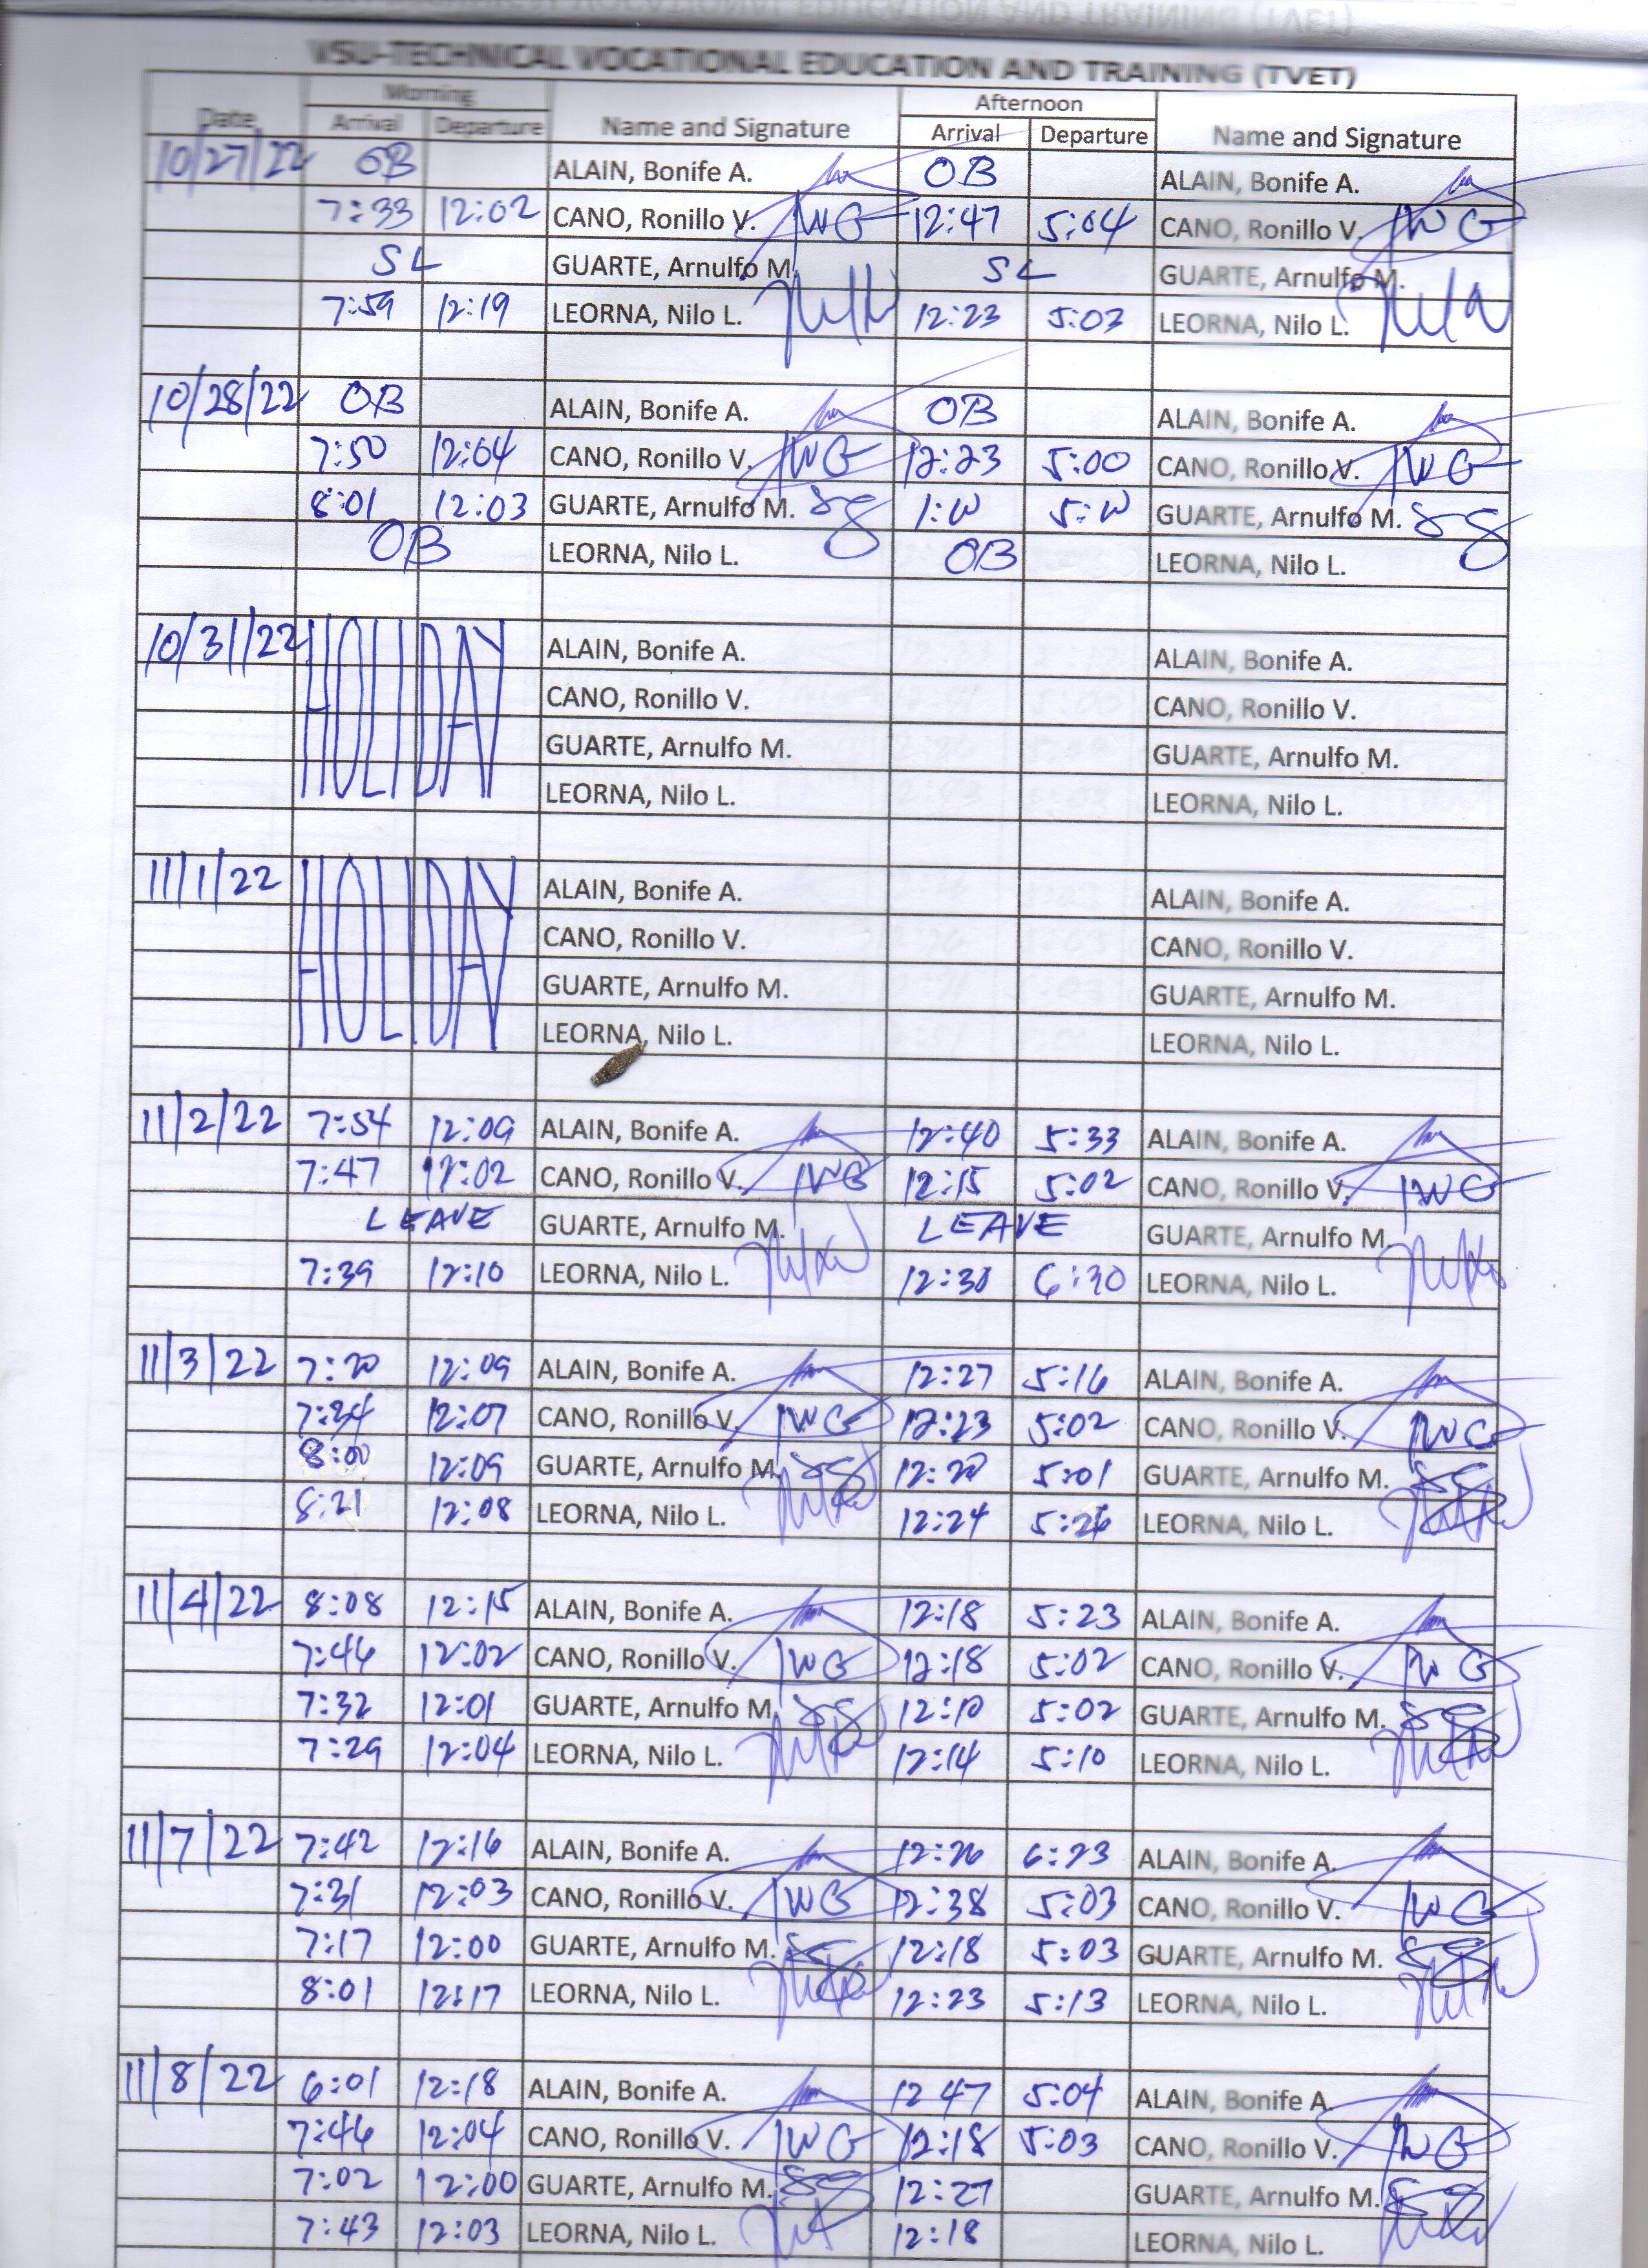 VSU-TECHNICAL VOCATIONAL EDUCATION AND TRAINING (TVET)
Morning Afternoon
Date Arrival Departure Name and Signature Arrival Departure Name and Signature
10/27/22 OB ALAIN, Bonife A. OB ALAIN, Bonife A.
7:33 12:02 CANO, Ronillo V. 12:47 5:04 CANO, Ronillo V.
SL GUARTE, Arnulfo M. SL GUARTE, Arnulfo M.
7:59 12:19 LEORNA, Nilo L. 12:23 5:03 LEORNA, Nilo L.
10/28/22 OB ALAIN, Bonife A. OB ALAIN, Bonife A.
7:50 12:04 CANO, Ronillo V. 12:23 5:00 CANO, Ronillo V.
8:01 12:03 GUARTE, Arnulfo M. GUARTE, Arnulfo M.
OB LEORNA, Nilo L. OB LEORNA, Nilo L.
10/31/22 HOLIDAY ALAIN, Bonife A. ALAIN, Bonife A.
CANO, Ronillo V. CANO, Ronillo V.
GUARTE, Arnulfo M. GUARTE, Arnulfo M.
LEORNA, Nilo L. LEORNA, Nilo L.
11/1/22 HOLIDAY ALAIN, Bonife A. ALAIN, Bonife A.
CANO, Ronillo V. CANO, Ronillo V.
GUARTE, Arnulfo M. GUARTE, Arnulfo M.
LEORNA, Nilo L. LEORNA, Nilo L.
11/2/22 7:54 12:09 ALAIN, Bonife A. 12:40 5:33 ALAIN, Bonife A.
7:47 12:02 CANO, Ronillo V. 12:15 5:02 CANO, Ronillo V.
LEAVE GUARTE, Arnulfo M. LEAVE GUARTE, Arnulfo M.
7:39 12:10 LEORNA, Nilo L. 12:30 6:30 LEORNA, Nilo L.
11/3/22 7:20 12:09 ALAIN, Bonife A. 12:27 5:16 ALAIN, Bonife A.
7:34 12:07 CANO, Ronillo V. 12:23 5:02 CANO, Ronillo V.
8:00 12:09 GUARTE, Arnulfo M. 12:20 5:01 GUARTE, Arnulfo M.
8:21 12:08 LEORNA, Nilo L. 12:24 LEORNA, Nilo L.
11/4/22 8:08 12:15 ALAIN, Bonife A. 12:18 5:23 ALAIN, Bonife A.
7:46 12:02 CANO, Ronillo V. 12:18 5:02 CANO, Ronillo V.
7:32 12:01 GUARTE, Arnulfo M. 12:10 5:02 GUARTE, Arnulfo M.
7:29 12:04 LEORNA, Nilo L. 12:14 5:10 LEORNA, Nilo L.
11/7/22 7:42 12:16 ALAIN, Bonife A. 12:26 6:23 ALAIN, Bonife A.
7:31 12:03 CANO, Ronillo V. 12:38 5:03 CANO, Ronillo V.
7:17 12:00 GUARTE, Arnulfo M. 12:18 5:03 GUARTE, Arnulfo M.
8:01 12:17 LEORNA, Nilo L. 12:23 5:13 LEORNA, Nilo L.
11/8/22 6:01 12:18 ALAIN, Bonife A. 12 47 5:04 ALAIN, Bonife A.
7:46 12:04 CANO, Ronillo V. 12:18 5:03 CANO, Ronillo V.
7:02 12:00 GUARTE, Arnulfo M. 12:27 GUARTE, Arnulfo M.
7:43 12:03 LEORNA, Nilo L. 12:18 LEORNA, Nilo L.